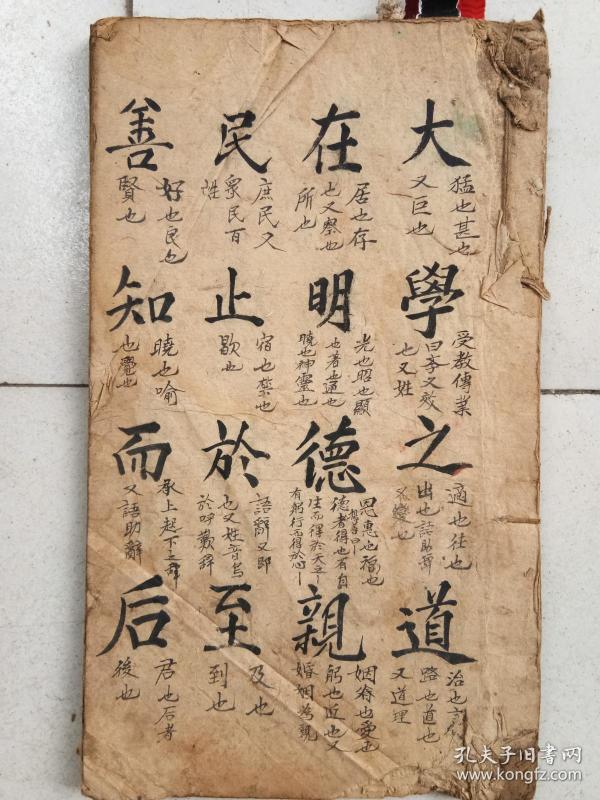 大
猛也甚也
又巨也
學
受教傳業
曰李又效
也又姓
之
適也往也
出也語助辞
又變也
道
治也言也
路也道也
又道理
在
居也存
也又察也
所也
明
光也昭也顯
也著也通也
曉也神靈也
德
恩惠也福也
德者得也有自
生而得於天之
有躬行而得於心
親
姻眷也愛也
躬也近也又
婚姻為親
民
庶民又
衆民百
姓
止
宿也禁也
歇也
於
語辭又即
也又姓音烏
於呼歎辞
至
及也
到也
善
好也良也
賢也
知
曉也喻
也覺也
而
承上起下之辞
又語助辭
后
君也后者
後也
孔夫子旧书网
www.kongfz.com